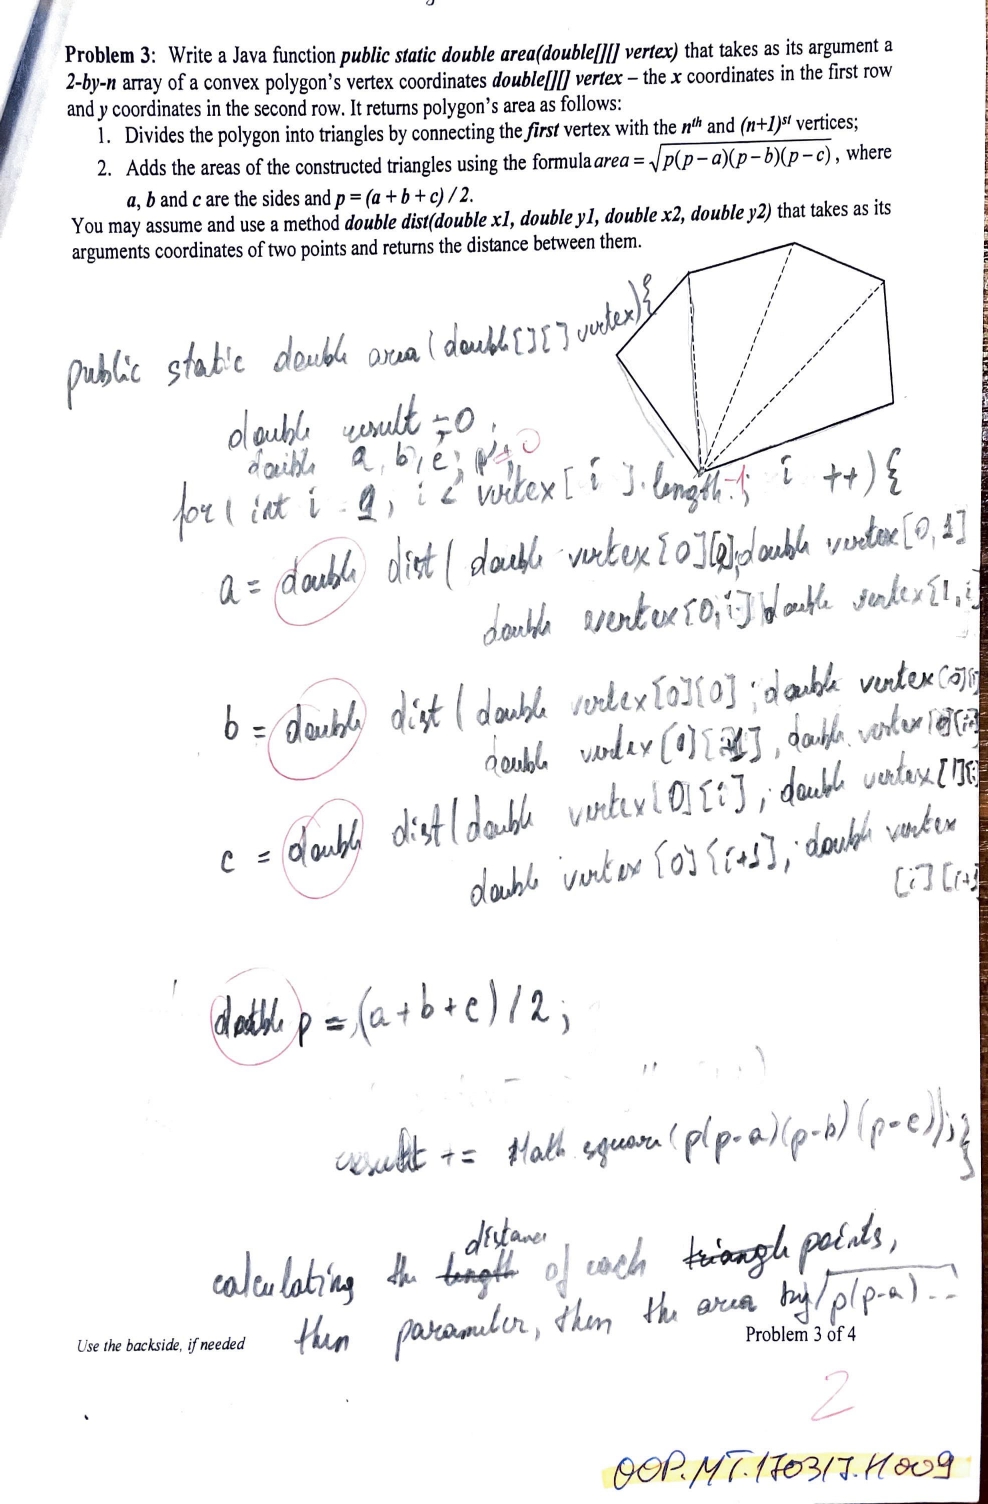 Problem 3: Write a Java function public static double area(double[][] vertex) that takes as its argument a
2-by-n array of a convex polygon's vertex coordinates double[][] vertex – the x coordinates in the first row
and y coordinates in the second row. It returns polygon's area as follows:
1. Divides the polygon into triangles by connecting the first vertex with the nth and (n+1)st vertices;
2. Adds the areas of the constructed triangles using the formula area = √p(p−a)(p−b)(p−c), where
a, b and c are the sides and p = (a + b + c) / 2.
You may assume and use a method double dist(double x1, double y1, double x2, double y2) that takes as its
arguments coordinates of two points and returns the distance between them.
public static double area (double[][] vertex){
double result = 0;
double a, b, c;
for (int i = ; i < vertex[i].length-1; i++){
a = double dist( double vertex[0][0], double vertex[0,1]
double vertex[0,i] double vertex[1,i]
b = double dist( double vertex[0][0]; double vertex[0]
double vertex[0], double vertex[0]
c = double dist( double vertex[0][i], double vertex[1][i]
double vertex[0][i+1], double vertex
[i][i+1]
double p = (a+b+c)/2;
result += Math.square(p(p-a)(p-b)(p-c));}
distance
calculating the length of each triangle points,
then parameter, then the area by √p(p-a)...
Use the backside, if needed
Problem 3 of 4
2
OOP.MT.170317.H009